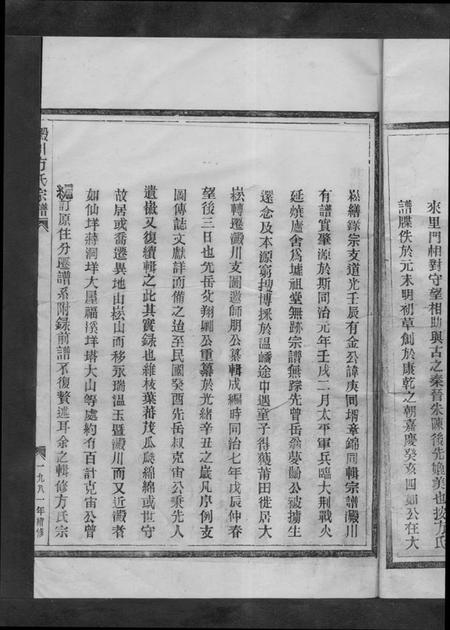 來里門相對守望相助與古之秦晉朱陳後先媲美也按方氏
譜牒佚於元末明初草創於康乾之朝嘉慶癸亥四如公在大
崧繕錄宗支道光壬辰有金公諱庚同堉章錦同輯宗譜澱川
有譜實肇源於斯同治元年壬戌二月太平軍兵臨大荆戰火
延燒廬舍為墟祖堂無跡宗譜無踪先曾岳翁夢勵公被擄生
還念及本源窮搜博採於溫嶠途中遇童子得莆田徙居大
崧轉遷澱川支圖邀師朋公纂輯成編時同治七年戊辰仲春
望後三日也先岳父翔颺公重纂於光緒辛丑之歲凡序例支
圖傳誌文獻詳而備之迨至民國癸酉先岳叔克宙公乘先人
遺徽又復續輯之此其實錄也維枝葉蕃茂瓜瓞綿綿或世守
故居或喬遷異地由崧山而移永瑞溫玉暨澱川而又近徙者
如仙垟蔣洞垟大屋福溪垟塔大山等處約有百計克宙公曾
編訂原住分遷譜系附錄前譜不復贅述耳余之輯修方氏宗
澱川方氏宗譜
一九八一年續修